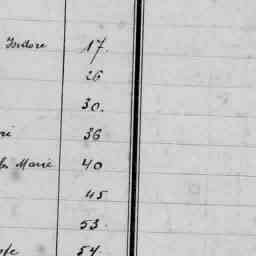 Isidore 17.
26
30.
36
Marie 40
45
53.
54.